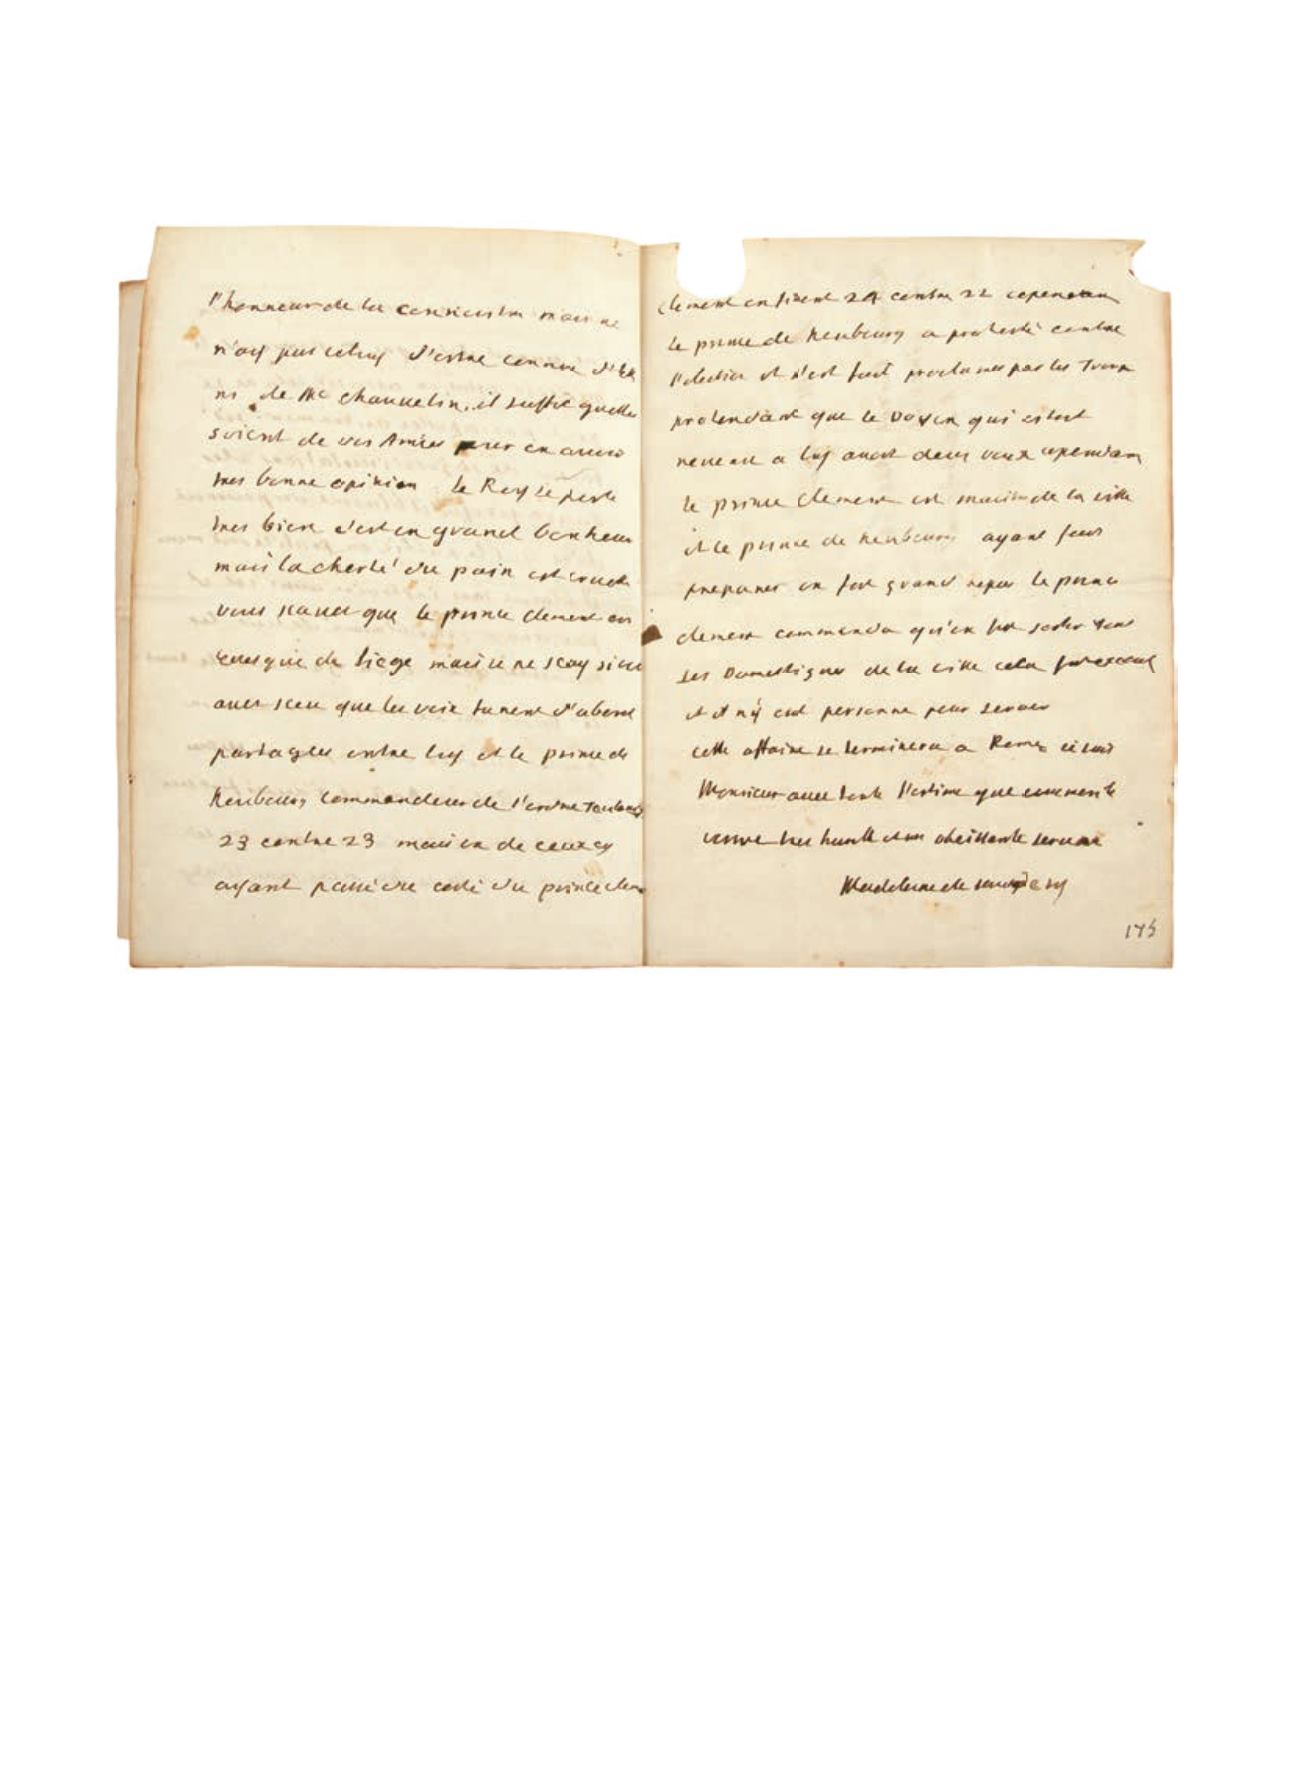 l'honneur de la connoistre mais ie
n'ay pas celuy d'estre connue d'elle
ni de Me chauuelin, il suffit quelles
soient de vos Amies pour en auoir
tres bonne opinion le Roy se porte
tres bien c'est un grand bonheur
mais la cherté du pain est cruelle
vous scauez que le prince clement est
euesque de liege mais ie ne scay si vous
auez sceu que les voix furent d'abord
partagées entre luy et le prince de
Neubourg commandeur de l'ordre Teuto
23 contre 23 mais un de ceux cy
ayant passé du costé du prince clem
clement en firent 24 contre 22 cependant
le prince de Neubourg a protesté contre
l'election et s'est fait proclamer par les
pretendant que le Doyen qui estoit
a luy auoit deux voix cependant
le prince clement est maistre de la ville
et le prince de Neubourg ayant fait
preparer un fort grand repas le prince
clement commanda qu'on fist sortir tous
ses Domestiques de la ville cela fut executé
et il n'y eut personne pour seruir
cette affaire se terminera a Rome ie suis
Monsieur auec toute l'estime que vous meritez
vostre tres humble et tres obeissante seruante
Madeleine de scudery
175